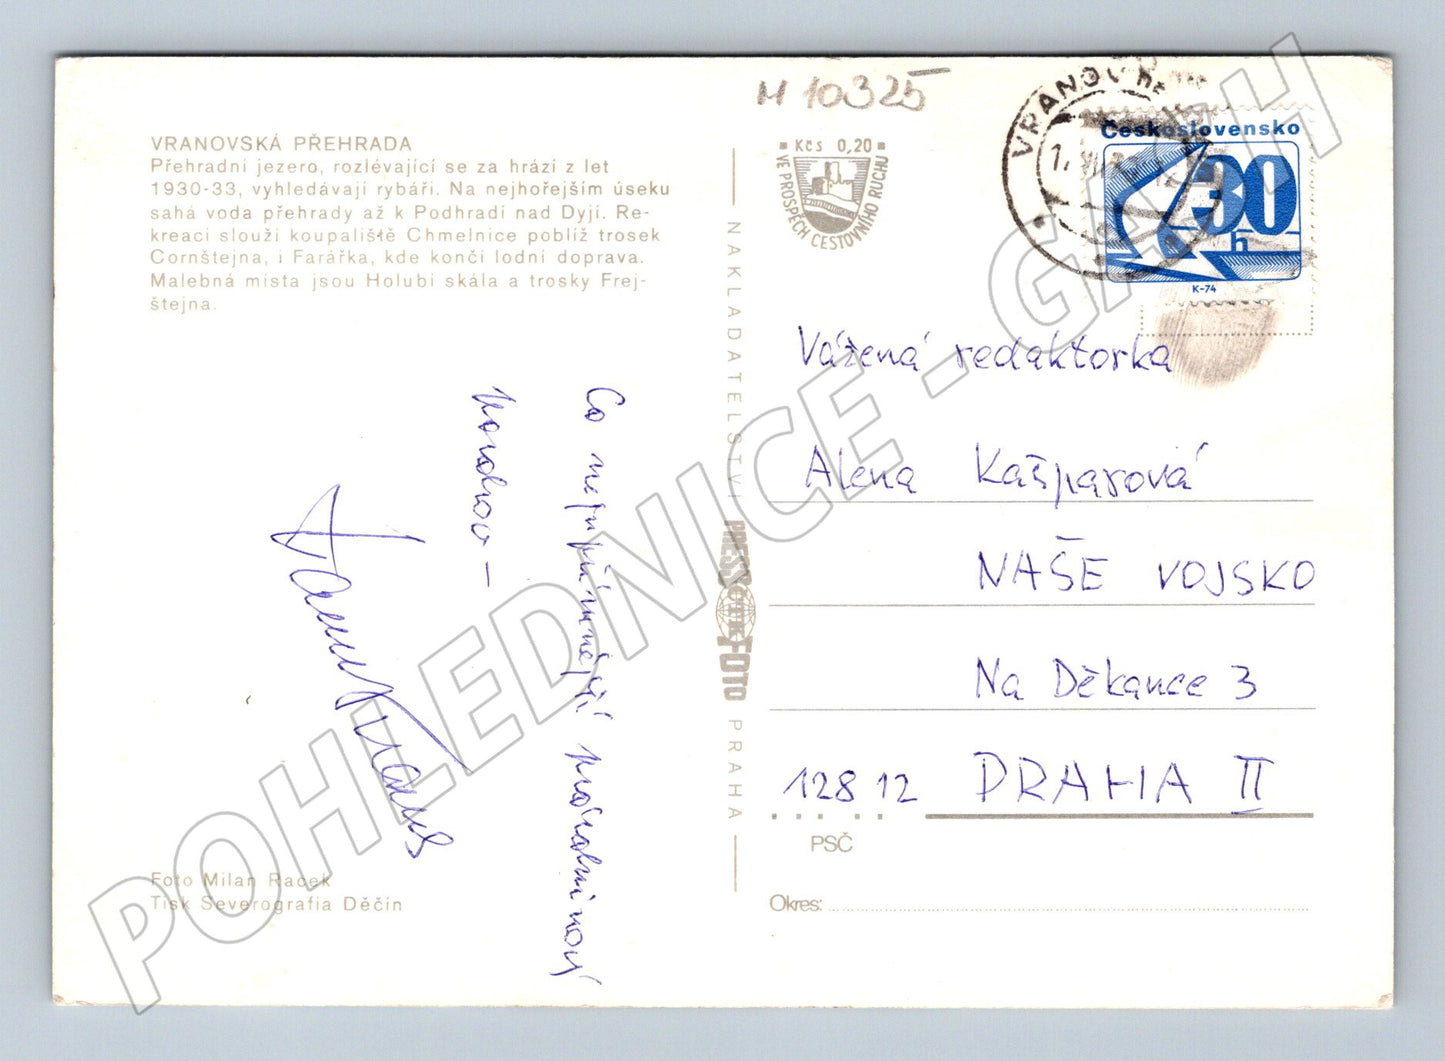 M 10325
VRANOVSKÁ PŘEHRADA
Přehradní jezero, rozlévající se za hrází z let
1930-33, vyhledávají rybáři. Na nejhořejším úseku
sahá voda přehrady až k Podhradí nad Dyjí. Re-
kreaci slouží koupaliště Chmelnice poblíž trosek
Cornštejna, i Farářka, kde končí lodní doprava.
Malebná místa jsou Holubí skála a trosky Frej-
štejna.
Co nejupřímnější
Foto Milan Racek
Tisk Severografia Děčín
NAKLADATELSTVÍ PRESSFOTO PRAHA
ČTK
Kčs 0,20
VE PROSPĚCH CESTOVNÍHO RUCHU
VRANOV
Československo
30
h
K-74
Vážená redaktorka
Alena Kašparová
NAŠE VOJSKO
Na Děkance 3
128 12 PRAHA II
PSČ
Okres:
POHLEDNICE - GASH